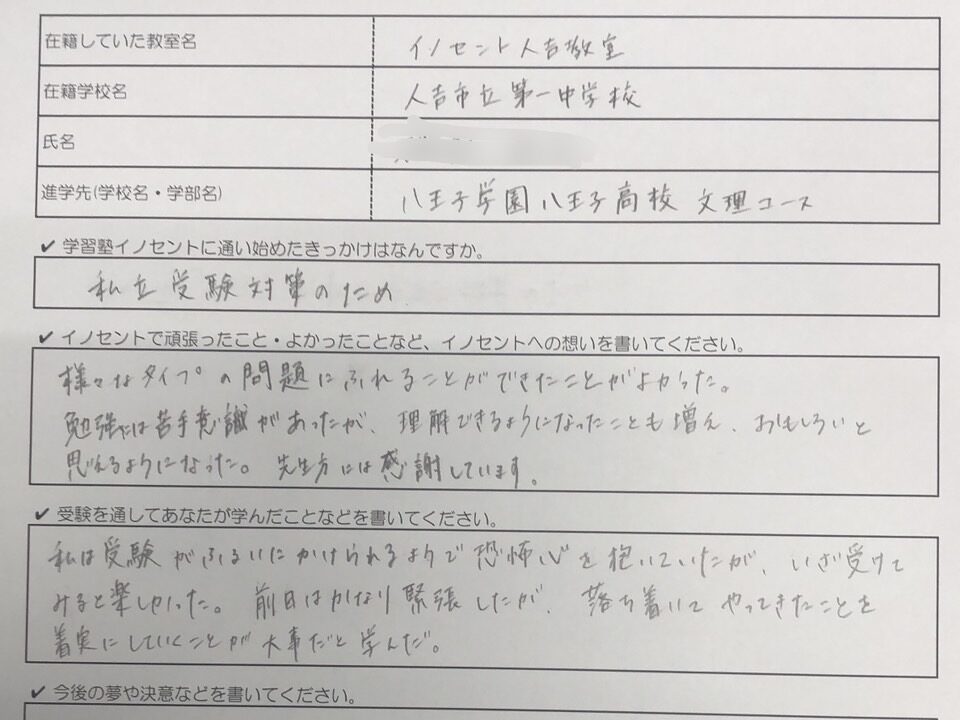 在籍していた教室名 イノセント人吉教室
在籍学校名 人吉市立第一中学校
氏名
進学先(学校名・学部名) 八王子学園八王子高校 文理コース
✔ 学習塾イノセントに通い始めたきっかけはなんですか。
私立受験対策のため
✔ イノセントで頑張ったこと・よかったことなど、イノセントへの想いを書いてください。
様々なタイプの問題にふれることができたことがよかった。
勉強には苦手意識があったが、理解できるようになったことも増え、おもしろいと
思えるようになった。先生方には感謝しています。
✔ 受験を通してあなたが学んだことなどを書いてください。
私は受験がふるいにかけられるようで恐怖心を抱いていたが、いざ受けて
みると楽しかった。前日はかなり緊張したが、落ち着いてやってきたことを
着実にしていくことが大事だと学んだ。
✔ 今後の夢や決意などを書いてください。